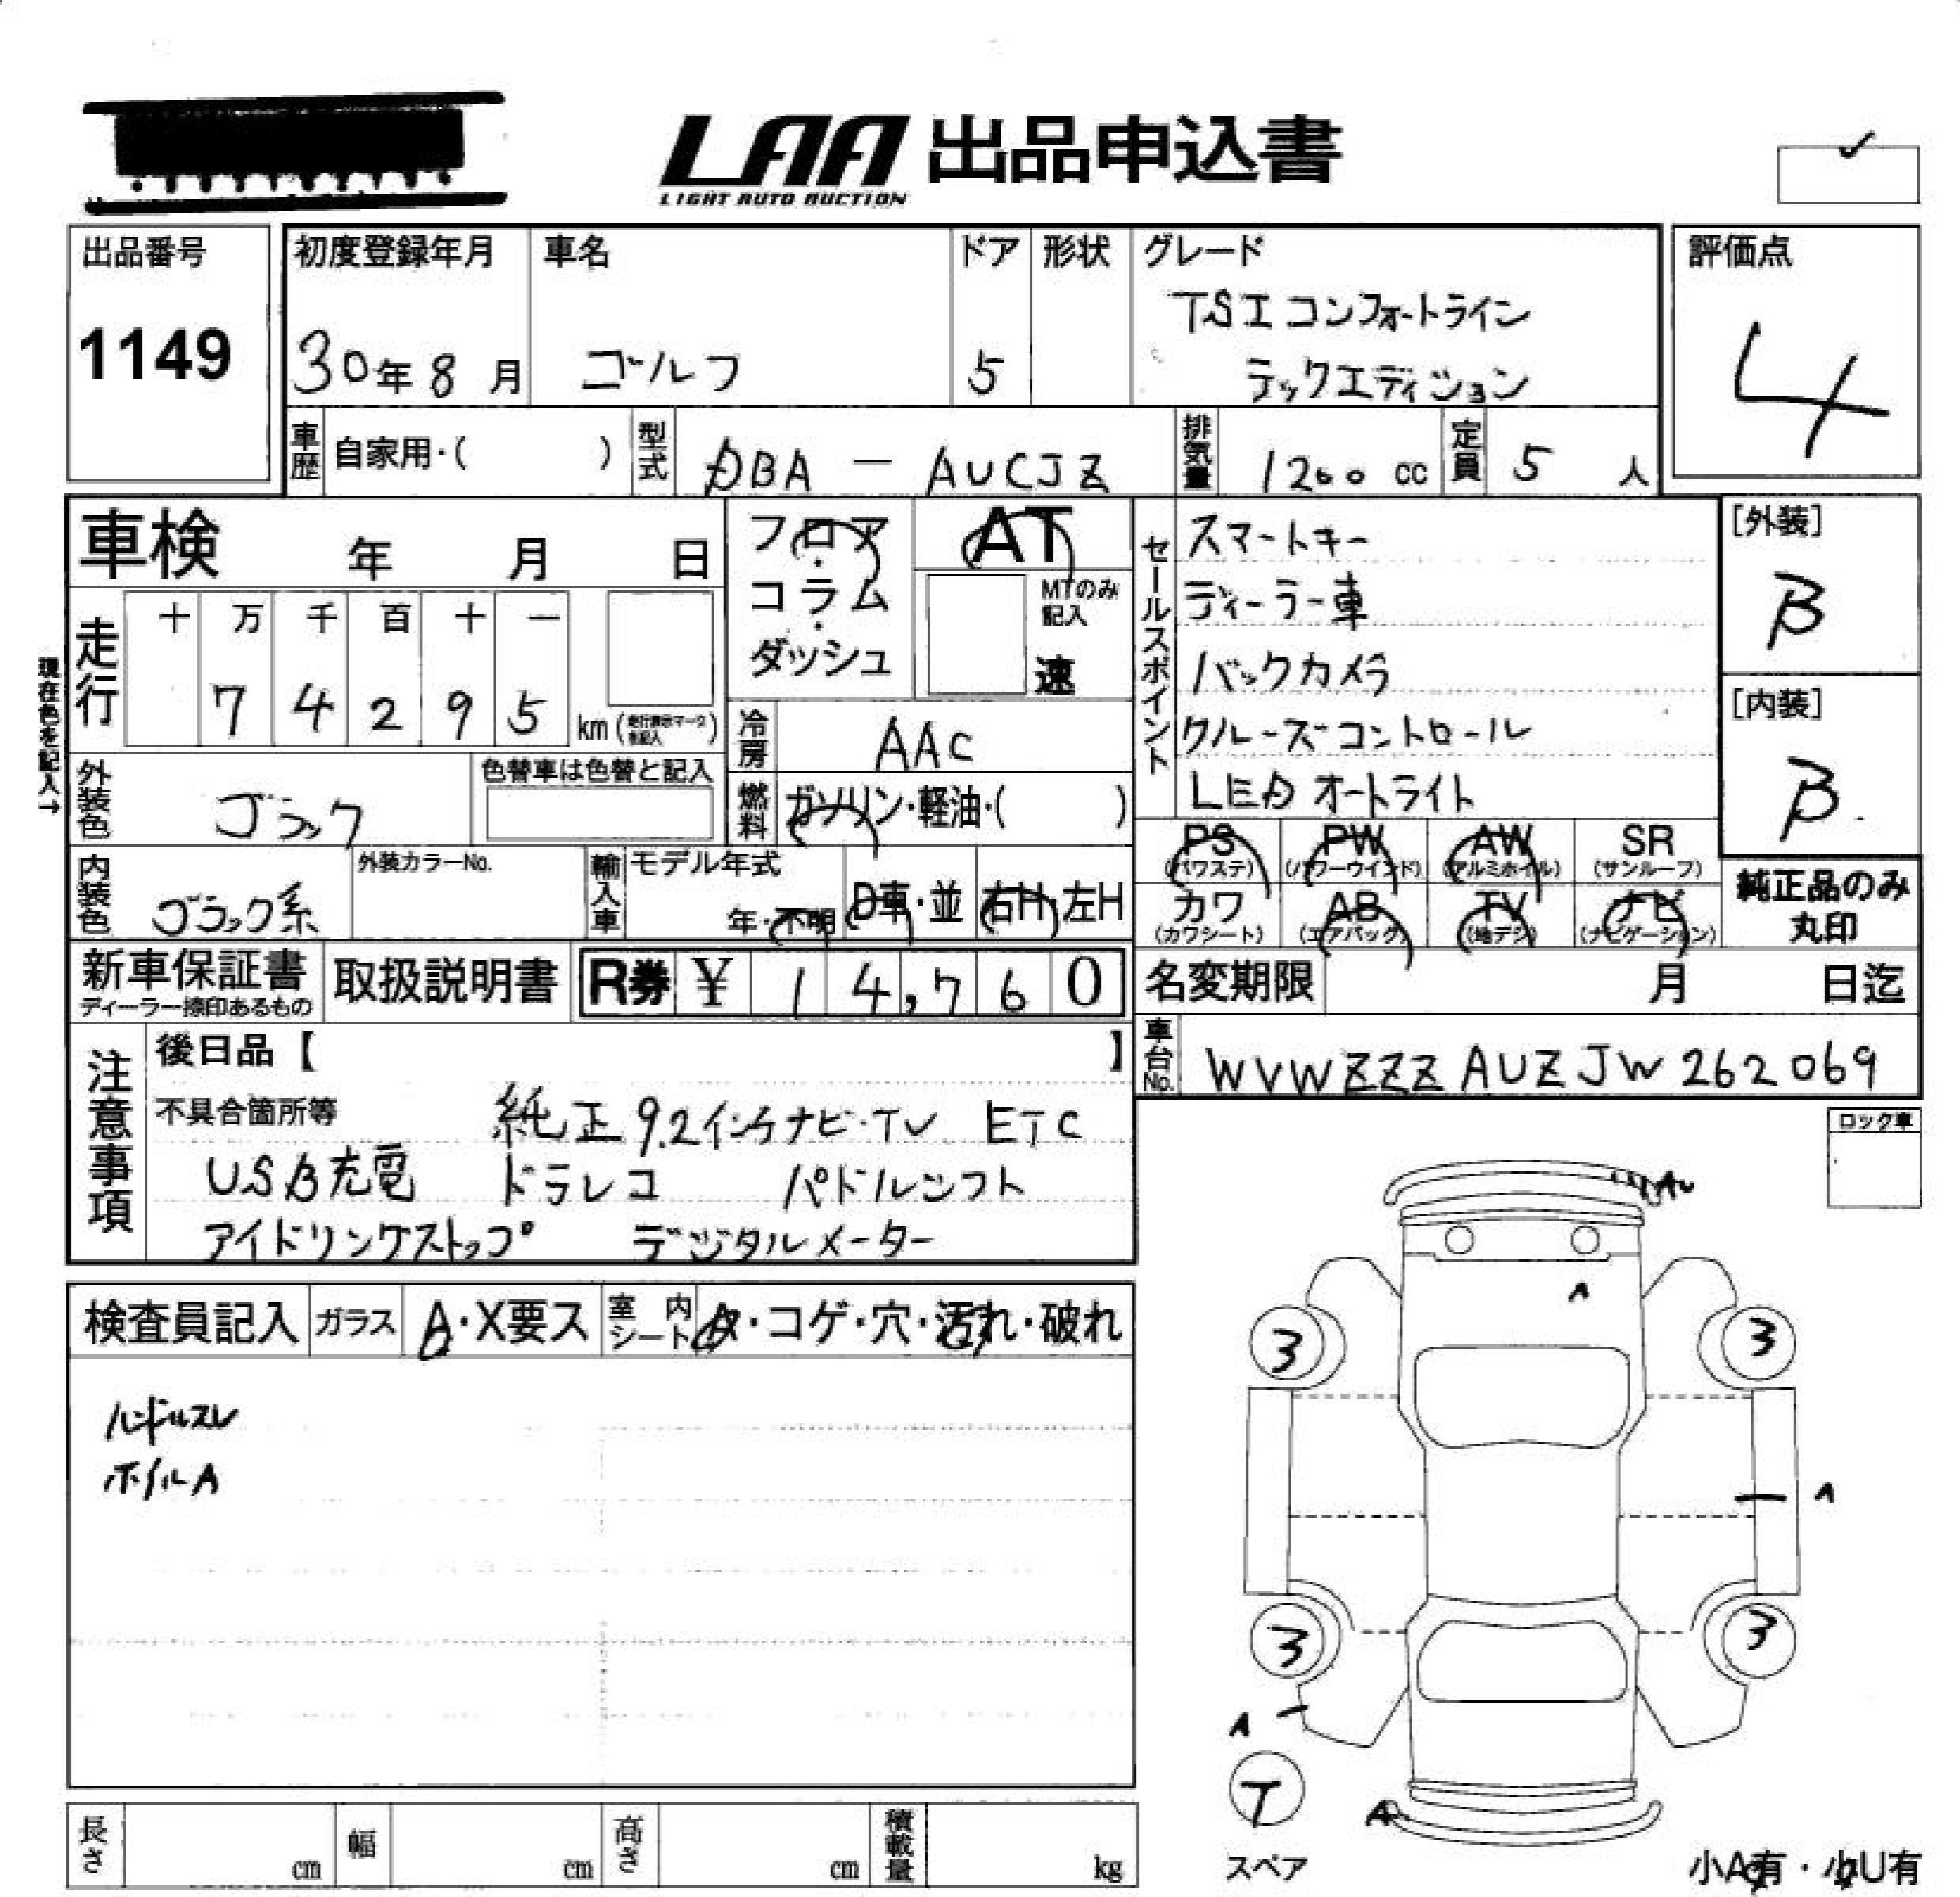 LAA 出品申込書
LIGHT AUTO AUCTION
出品番号
1149
初度登録年月
30年8月
車名
ゴルフ
ドア
5
形状
グレード
TSI コンフォートライン
テックエディション
評価点
4
車歴
自家用・( )
型式
DBA － AUCJZ
排気量
1200 cc
定員
5 人
車検 年 月 日
フロア・
コラム・
ダッシュ
AT
MTのみ記入
速
セールスポイント
スマートキー
ディーラー車
バックカメラ
クルーズコントロール
LED オートライト
[外装]
B
[内装]
B
現在色を記入→
走行
十 万 千 百 十 一
7 4 2 9 5
km (走行表示マークを記入)
冷房
AAC
外装色
ブラック
色替車は色替と記入
燃料
ガソリン・軽油・( )
PS (パワステ)
PW (パワーウインド)
AW (アルミホイル)
SR (サンルーフ)
内装色
ブラック系
外装カラーNo.
輸入車
モデル年式
年・不明
D車・並
右H・左H
カワ (カワシート)
AB (エアバック)
TV (地デジ)
ナビ (ナビゲーション)
純正品のみ
丸印
新車保証書
ディーラー捺印あるもの
取扱説明書
R券 ¥ 14,760
名変期限 月 日迄
車台No.
WVWZZZAUZJW262069
注意事項
後日品【 】
不具合箇所等
純正9.2インチナビ・TV ETC
USB充電 ドラレコ パドルシフト
アイドリングストップ デジタルメーター
ロック車
検査員記入
ガラス
A・X要ス
室内シート
A・コゲ・穴・汚れ・破れ
ハンドルスレ
ホイルA
AU
A
3 3
A
3 3
A
T
スペア
A
小A有・小U有
長さ cm
幅 cm
高さ cm
積載量 kg